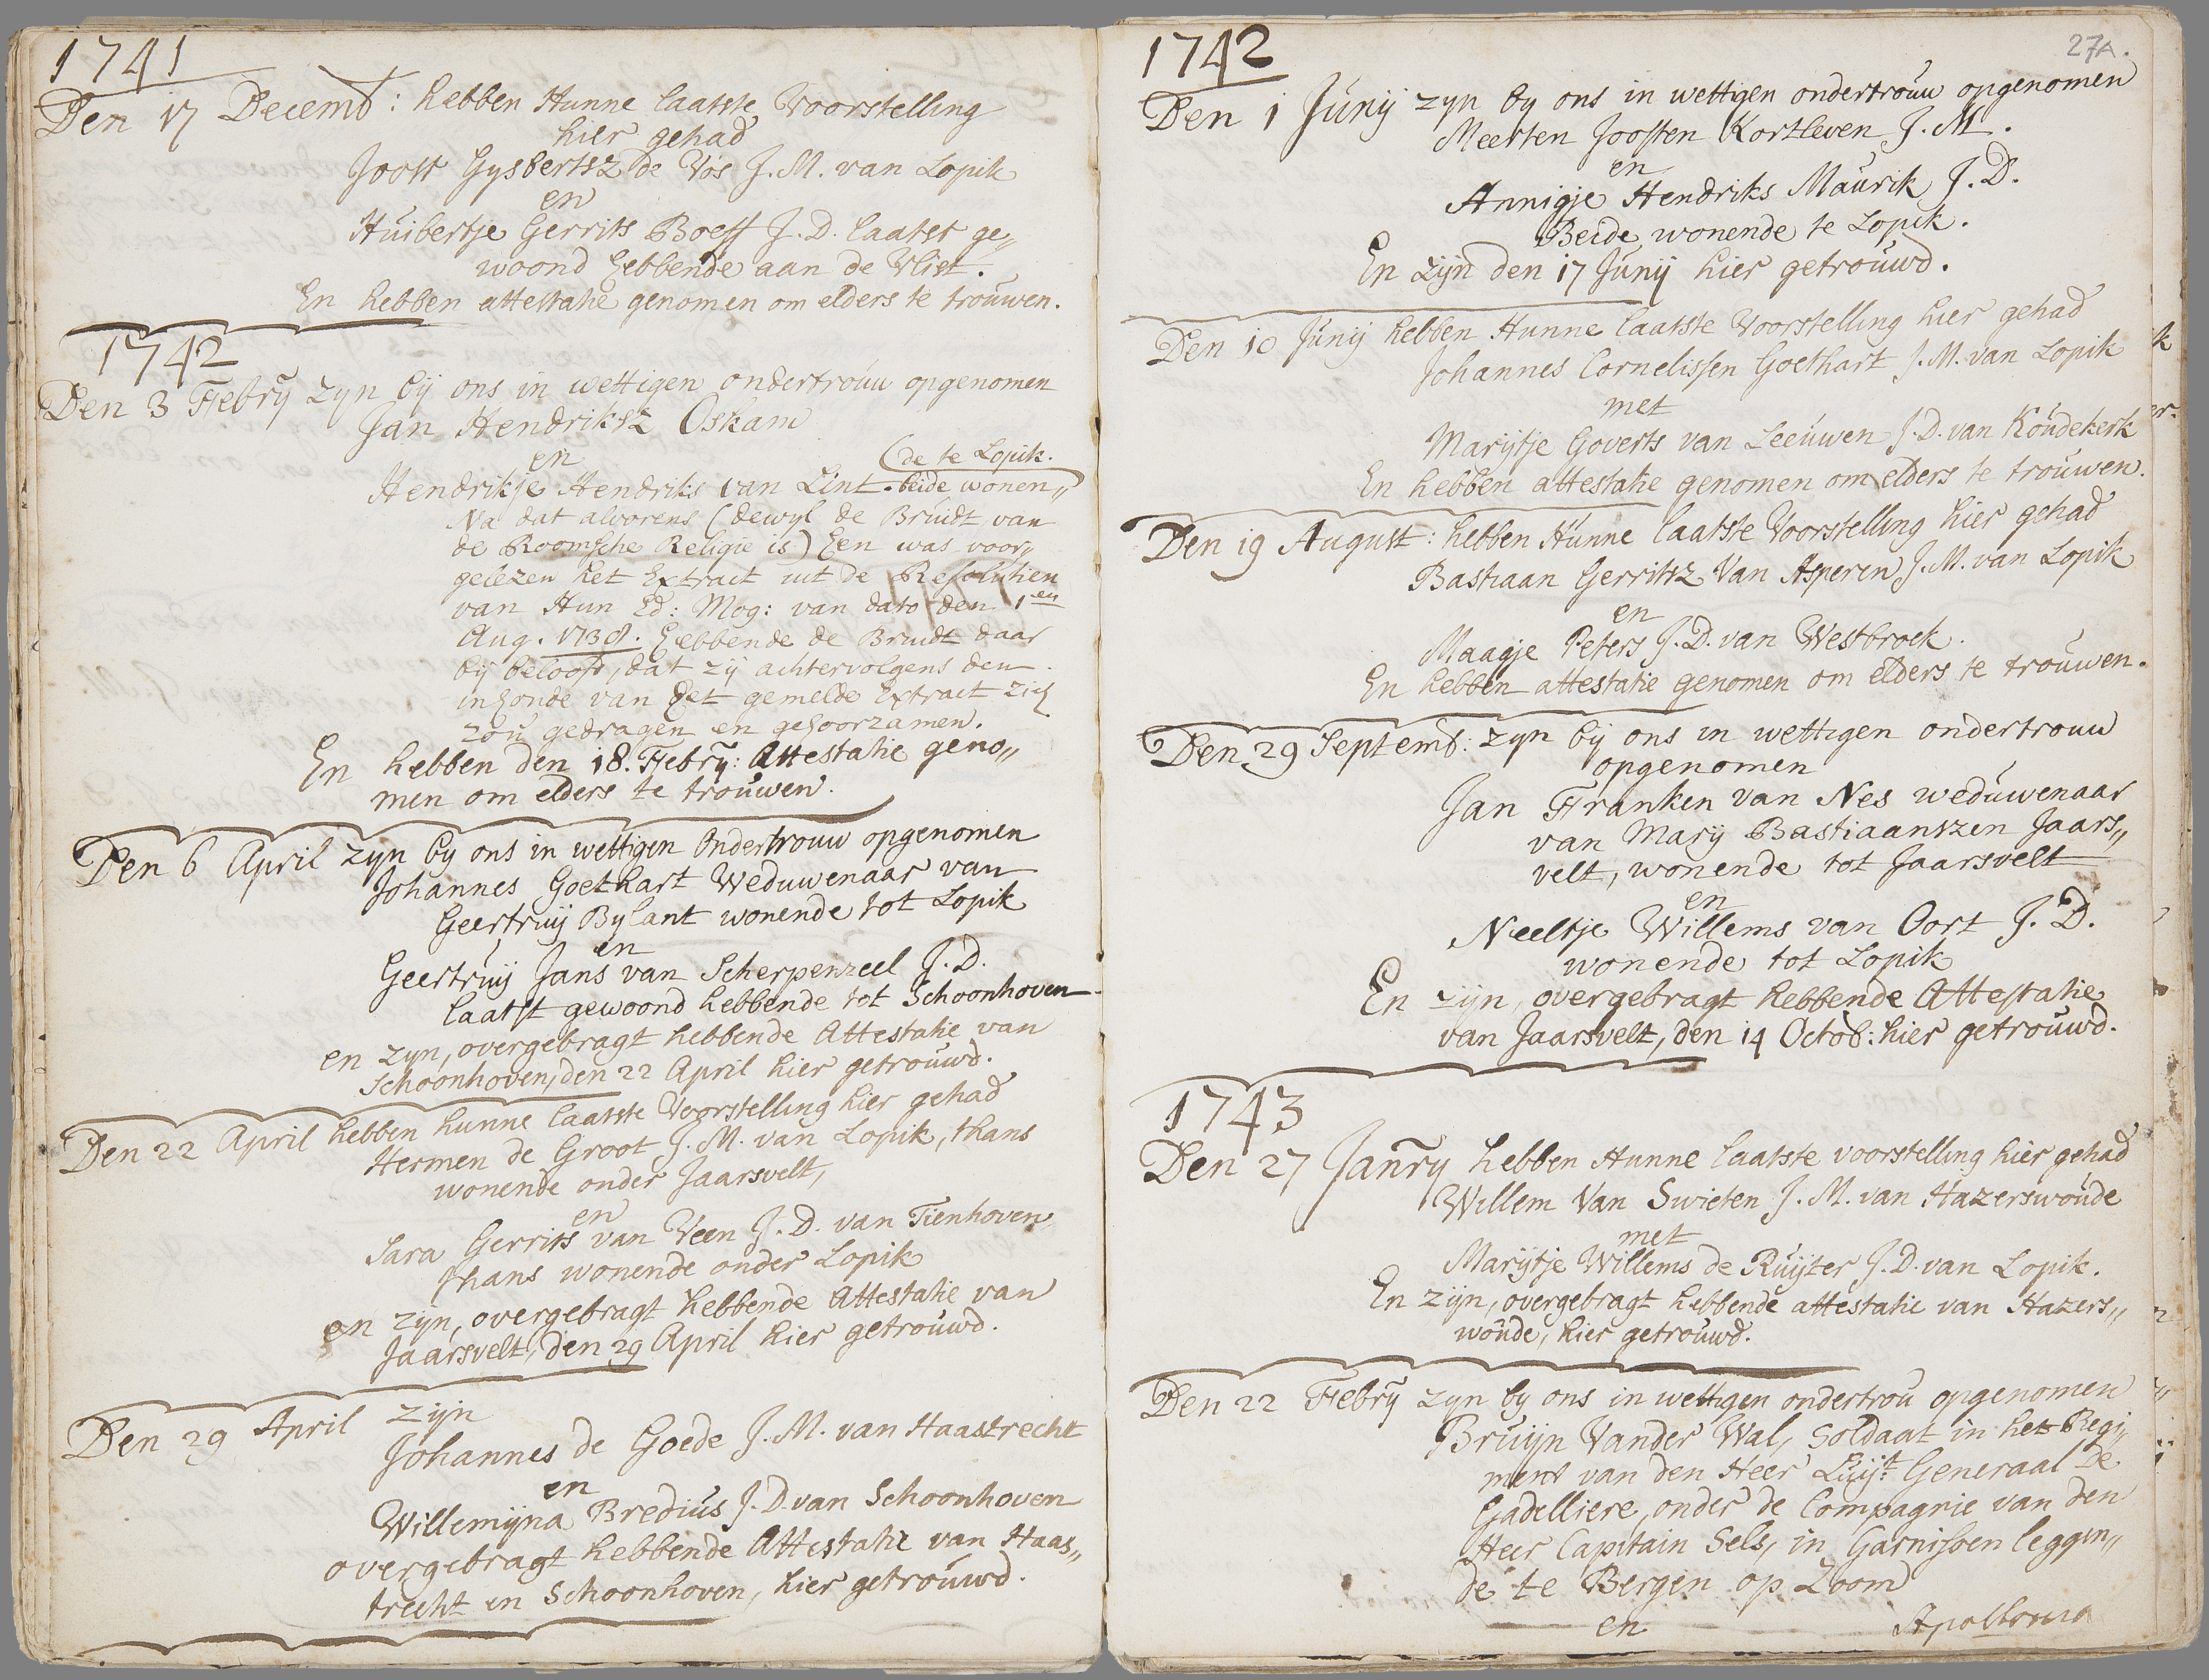 1741
Den 17 Decemb: hebben Hunne laatste Voorstelling
hier gehad
Joost Gysbertsz de Vos J. M. van Lopik
en
Huibertje Gerrits Boeff J. D. laatst ge„
woond hebbende aan de Vlist.
En hebben attestatie genomen om elders te trouwen.
1742
Den 3 Febry zyn bij ons in wettigen ondertrouw opgenomen
Jan Hendriksz Oskam
en
(de te Lopik.
Hendrikje Hendriks van Lint. beide wonen„
Na dat alvorens (dewyl de Bruidt van
de Roomsche Religie is) hen was voor„
gelezen het Extract uit de Resolutien
van Hun Ed: Mog: van dato den 1en
Aug. 1738. hebbende de Bruidt daar
bij beloofd, dat zij achtervolgens den
inhoude van het gemelde Extract zich
zou gedragen en gehoorzamen.
En hebben den 18. Febry: Attestatie geno„
men om elders te trouwen.
Den 6 April zyn by ons in wettigen Ondertrouw opgenomen
Johannes Goethart Weduwenaar van
Geertruij Bylant wonende tot Lopik
en
Geertruij Jans van Scherpenzeel J. D.
laatst gewoond hebbende tot Schoonhoven
en zyn, overgebragt hebbende Attestatie van
Schoonhoven, den 22 April hier getrouwd.
Den 22 April hebben hunne laatste Voorstelling hier gehad
Hermen de Groot J. M. van Lopik, thans
wonende onder Jaarsvelt,
en
Sara Gerrits van Veen J. D. van Tienhoven
thans wonende onder Lopik
en zijn, overgebragt hebbende Attestatie van
Jaarsvelt, den 29 April hier getrouwd.
Den 29 April zijn
Johannes de Goede J. M. van Haastrecht
en
Willemijna Bredius J. D. van Schoonhoven
overgebragt hebbende Attestatie van Haas„
trecht en Schoonhoven, hier getrouwd.
27A.
1742
Den 1 Junij zyn by ons in wettigen ondertrouw opgenomen
Meerten Joosten Kortleven J. M.
en
Annigje Hendriks Maurik J. D.
Beide wonende te Lopik.
En zijn den 17 Junij hier getrouwd.
Den 10 Junij hebben Hunne laatste Voorstelling hier gehad
Johannes Cornelissen Goethart J. M. van Lopik
met
Marijtje Goverts van Leeuwen J. D. van Koudekerk
En hebben attestatie genomen om elders te trouwen.
Den 19 August: hebben Hunne laatste Voorstelling hier gehad
Bastiaan Gerritsz Van Asperen J. M. van Lopik
en
Maagje Peters J. D. van Westbroek.
En hebben attestatie genomen om elders te trouwen.
Den 29 Septemb: zyn bij ons in wettigen ondertrouw
opgenomen
Jan Franken van Nes weduwenaar
van Marij Bastiaanszen Jaars„
velt, wonende tot Jaarsvelt
en
Neeltje Willems van Oort J. D.
wonende tot Lopik
En zijn, overgebragt hebbende Attestatie
van Jaarsvelt, den 14 Octob: hier getrouwd.
1743
Den 27 Janry hebben Hunne laatste voorstelling hier gehad
Willem Van Swieten J. M. van Hazerswoude
met
Marijtje Willems de Ruijter J. D. van Lopik.
En zijn, overgebragt hebbende attestatie van Hazers„
woude, hier getrouwd.
Den 22 Febry zyn by ons in wettigen ondertrou opgenomen
Bruijn Vander Wal, Soldaat in het Regi„
ment van den Heer Luijt Generaal De
Gadelliere, onder de Compagnie van den
Heer Capitain Sels, in Garnisoen leggen„
de te Bergen op Zoom
en
Apollonia